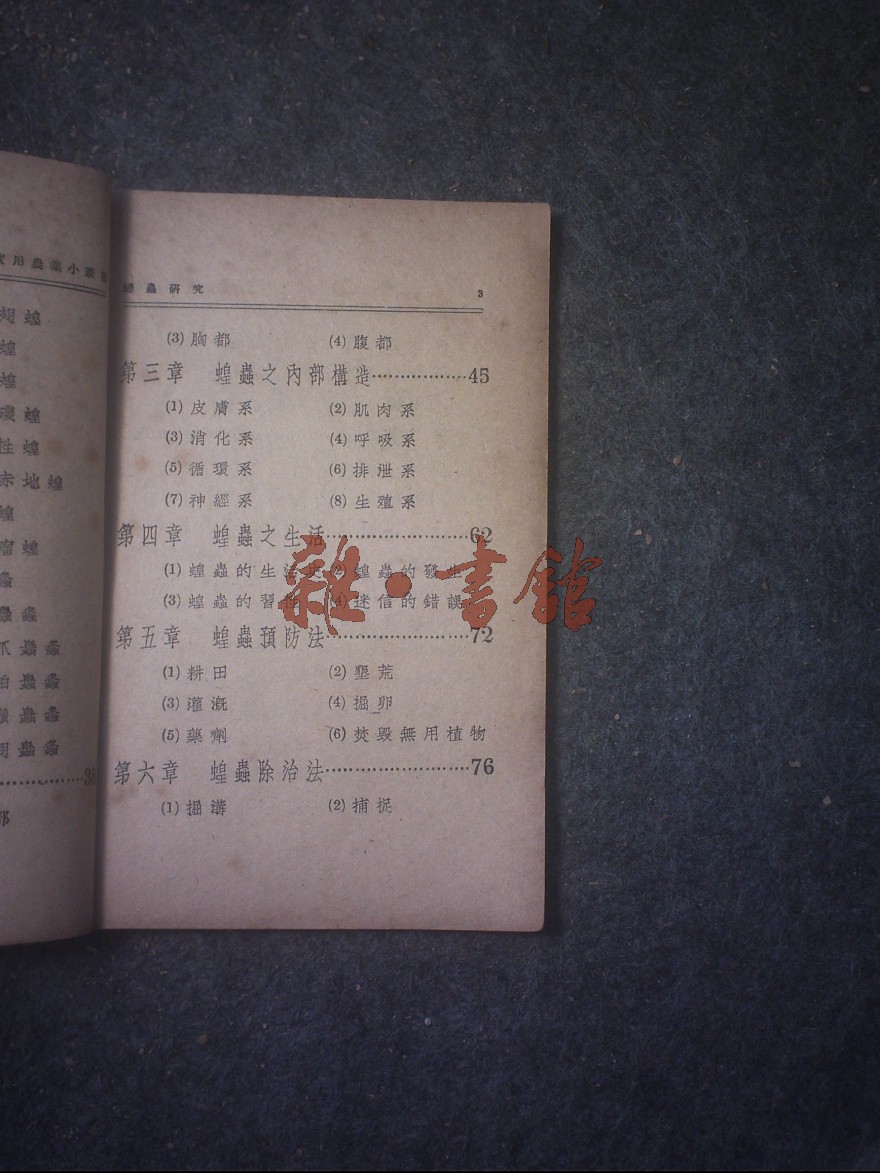 用農業小叢
蝗
蝗
蝗
蝗
性蝗
赤地蝗
蝗
瘤蝗
螽
螽
螽
螽
螽
螽
……35
部
蟲研究 3
(3) 胸都 (4) 腹都
第三章 蝗蟲之內部構造………………45
(1) 皮膚系 (2) 肌肉系
(3) 消化系 (4) 呼吸系
(5) 循環系 (6) 排泄系
(7) 神經系 (8) 生殖系
第四章 蝗蟲之生活………………62
(1) 蝗蟲的生活史 (2) 蝗蟲的發生
(3) 蝗蟲的習性 (4) 迷信的錯誤
雜·書館
第五章 蝗蟲預防法………………72
(1) 耕田 (2) 墾荒
(3) 灌漑 (4) 掘卵
(5) 藥劑 (6) 焚毀無用植物
第六章 蝗蟲除治法………………76
(1) 掘溝 (2) 捕捉